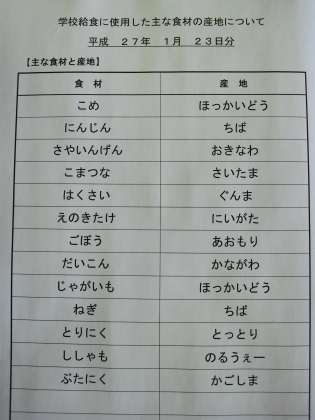 学校給食に使用した主な食材の産地について
平成 27年 1月 23日分
【主な食材と産地】
食材 産地
こめ ほっかいどう
にんじん ちば
さやいんげん おきなわ
こまつな さいたま
はくさい ぐんま
えのきたけ にいがた
ごぼう あおもり
だいこん かながわ
じゃがいも ほっかいどう
ねぎ ちば
とりにく とっとり
ししゃも のるうぇー
ぶたにく かごしま